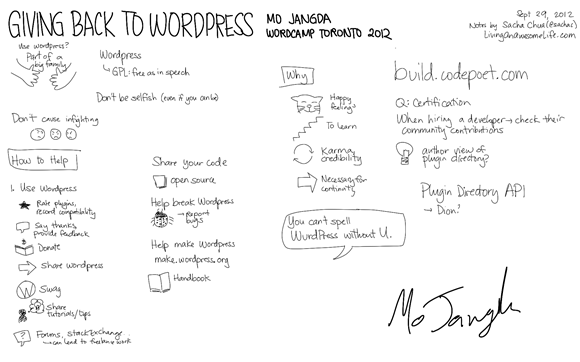 GIVING BACK TO WORDPRESS
MO JANGDA
WORDCAMP TORONTO 2012
Sept 29, 2012
Notes by Sacha Chua (@sachac)
LivingAnAwesomeLife.com
Use Wordpress?
Part of a
big family
Wordpress
GPL: free as in speech
Don't be selfish (even if you can be)
Don't cause infighting
How to Help
1. Use Wordpress
Rate plugins,
record compatibility
Say thanks,
provide feedback
Donate
Share wordpress
Swag
Share
tutorials/tips
Forums, stackexchange...
can lead to freelance work
Share your code
open source
Help break Wordpress
Report
bugs
Help make Wordpress
make.wordpress.org
Handbook
Why
Happy
feelings
To learn
Karma,
credibility
Necessary for
continuity
You can't spell
WurdPress without U.
build.codepoet.com
Q: Certification
When hiring a developer → check their
community contributions
author view of
plugin directory?
Plugin Directory API
→ Dion?
Mo Jangda